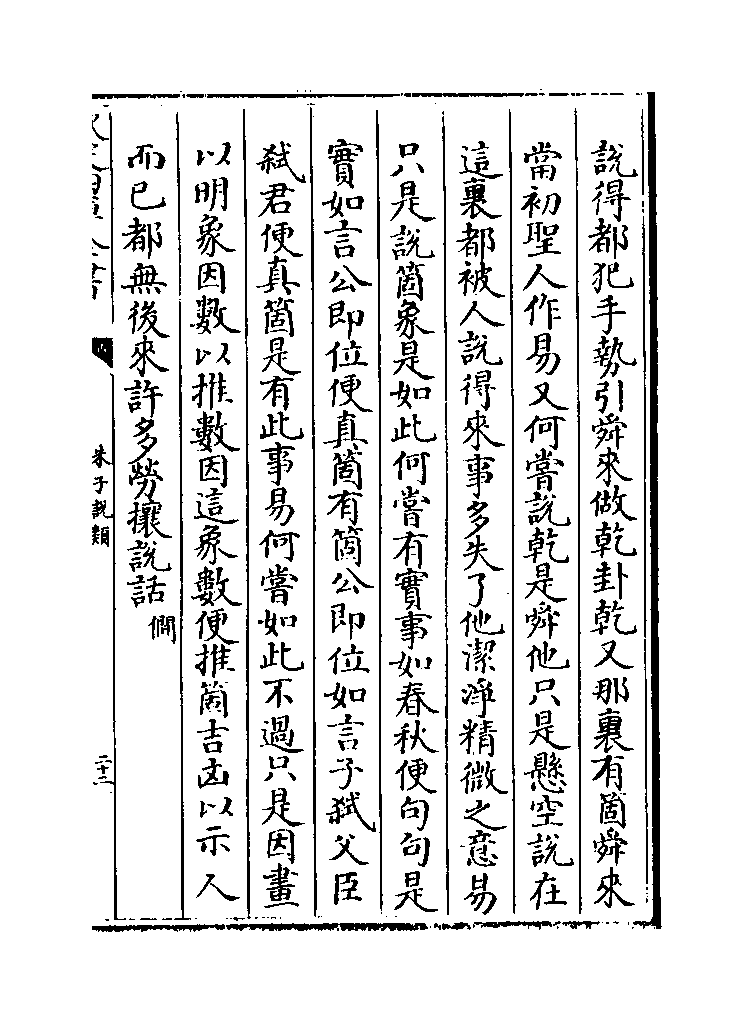 說得都犯手勢引舜來做乾卦乾又那裏有箇舜來
當初聖人作易又何嘗說乾是舜他只是懸空說在
這裏都被人說得來事多失了他潔淨精微之意易
只是說箇象是如此何嘗有實事如春秋便句句是
實如言公即位便真箇有箇公即位如言子弒父臣
弒君便真箇是有此事易何嘗如此不過只是因畫
以明象因數以推數因這象數便推箇吉凶以示人
而已都無後來許多勞攘說話僩
朱子語類
二十二